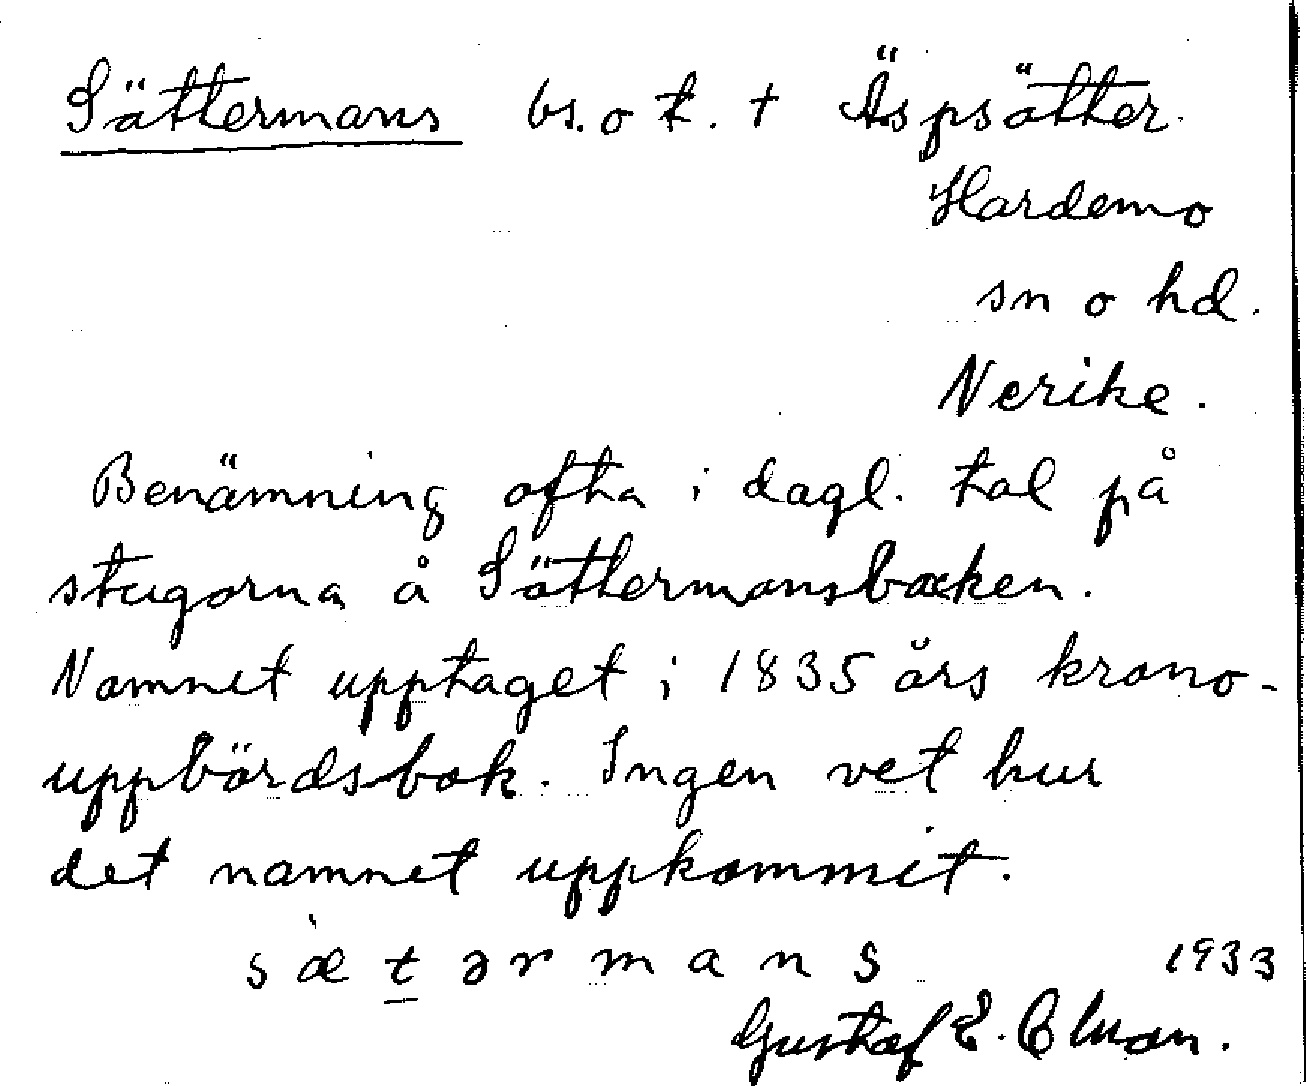 Sättermans bs. o t. + Äspsätter.
Hardemo
sn o hd.
Nerike.
Benämning ofta i dagl. tal på
stugorna å Sättermansbacken.
Namnet upptaget i 1835 års krono-
uppbördsbok. Ingen vet hur
det namnet uppkommit.
s æ̀ t ə r m a n s 1933
Gustaf E.